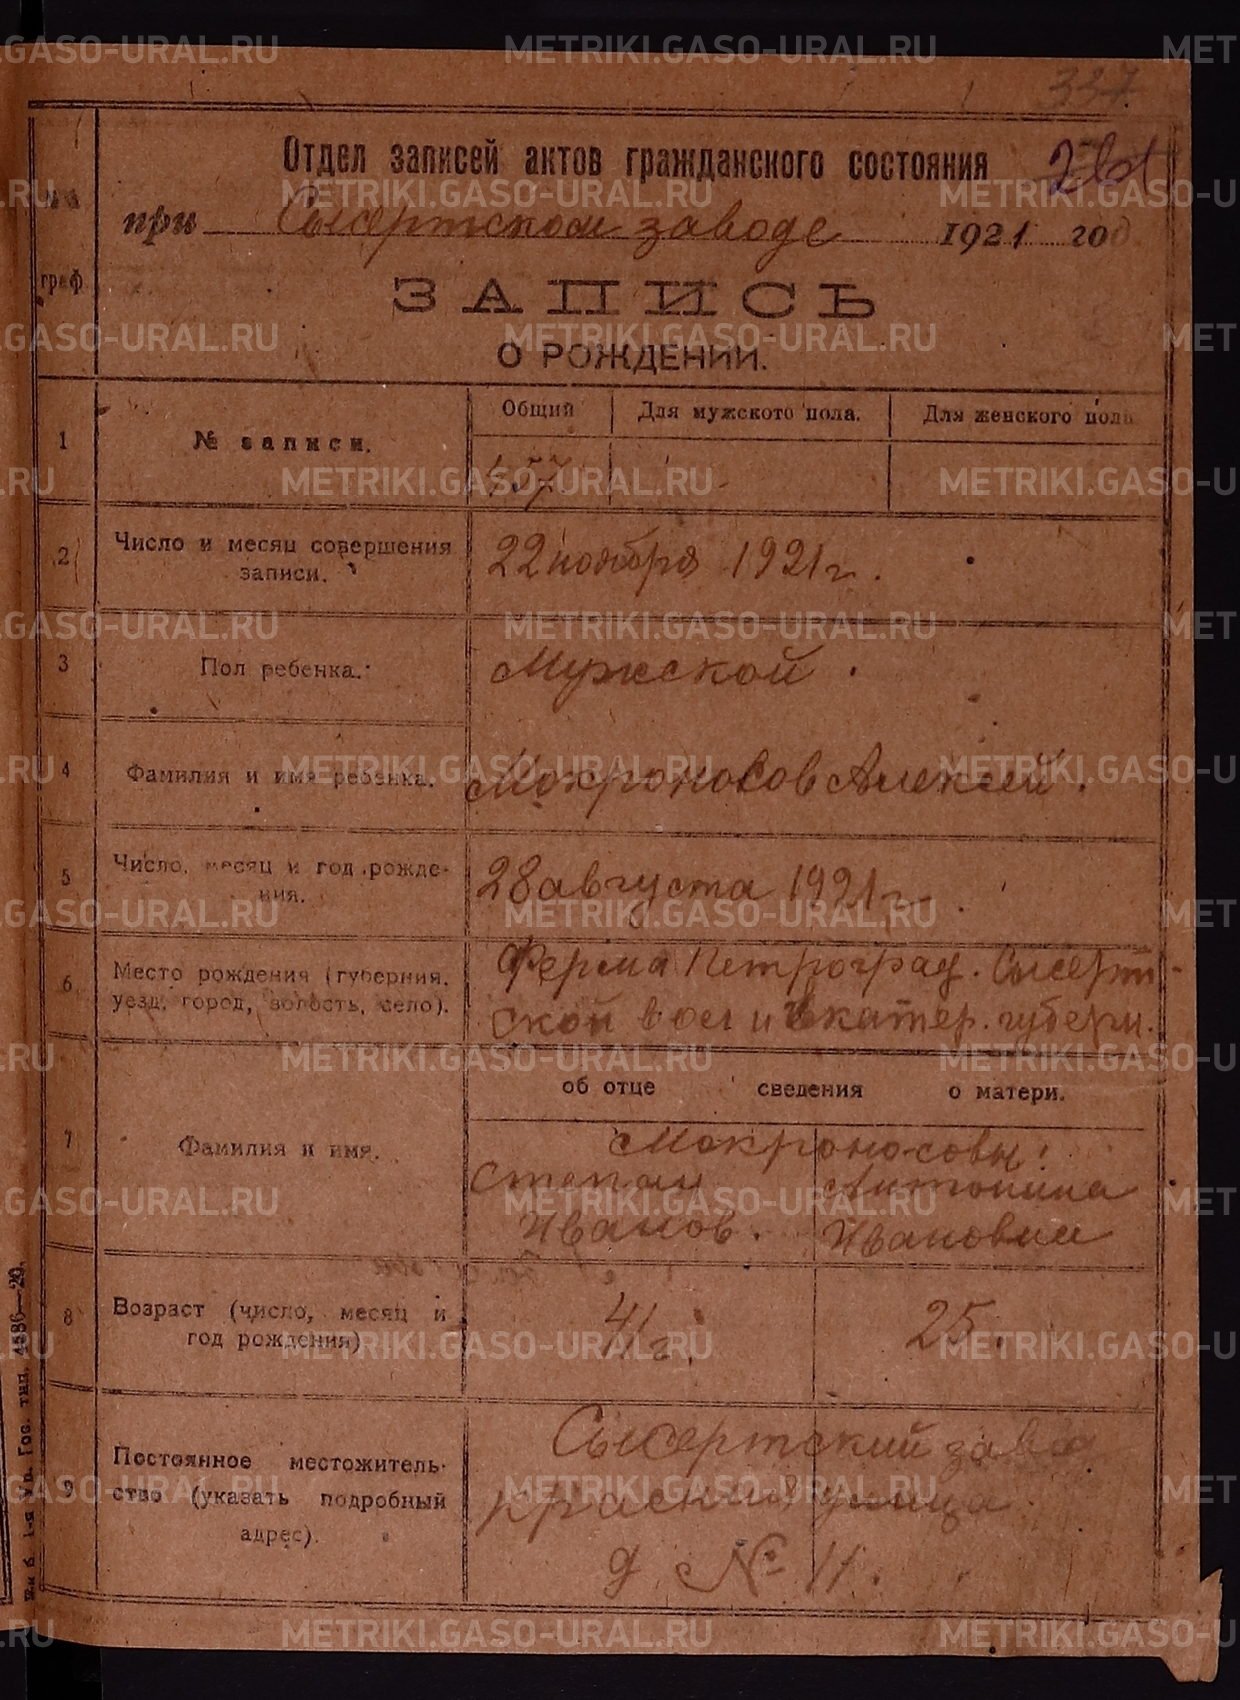 337
Отдел записей актов гражданского состояния
при Сысертском заводе 1921 год
№№ граф
ЗАПИСЬ
О РОЖДЕНИИ.
1 № записи. Общий Для мужского пола. Для женского пола
457
2 Число и месяц совершения записи. 22 ноября 1921 г.
3 Пол ребенка. Мужской.
4 Фамилия и имя ребенка. Мокроносов Алексей.
5 Число, месяц и год рожде-
ния. 28 августа 1921 г.
6 Место рождения (губерния, Ферма Петроград. Сысерт-
уезд, город, волость, село). ской вол и Екатер. губерн.
об отце сведения о матери.
7 Фамилия и имя. Мокроносовы:
Степан Антонина
Иванов. Ивановна
8 Возраст (число, месяц и
год рождения) 41 г. 25.
9 Постоянное местожитель-
ство (указать подробный
адрес). Сысертский завод
Красная улица
д № 11.
1-я Гос. тип. 4586—20.
METRIKI.GASO-URAL.RU